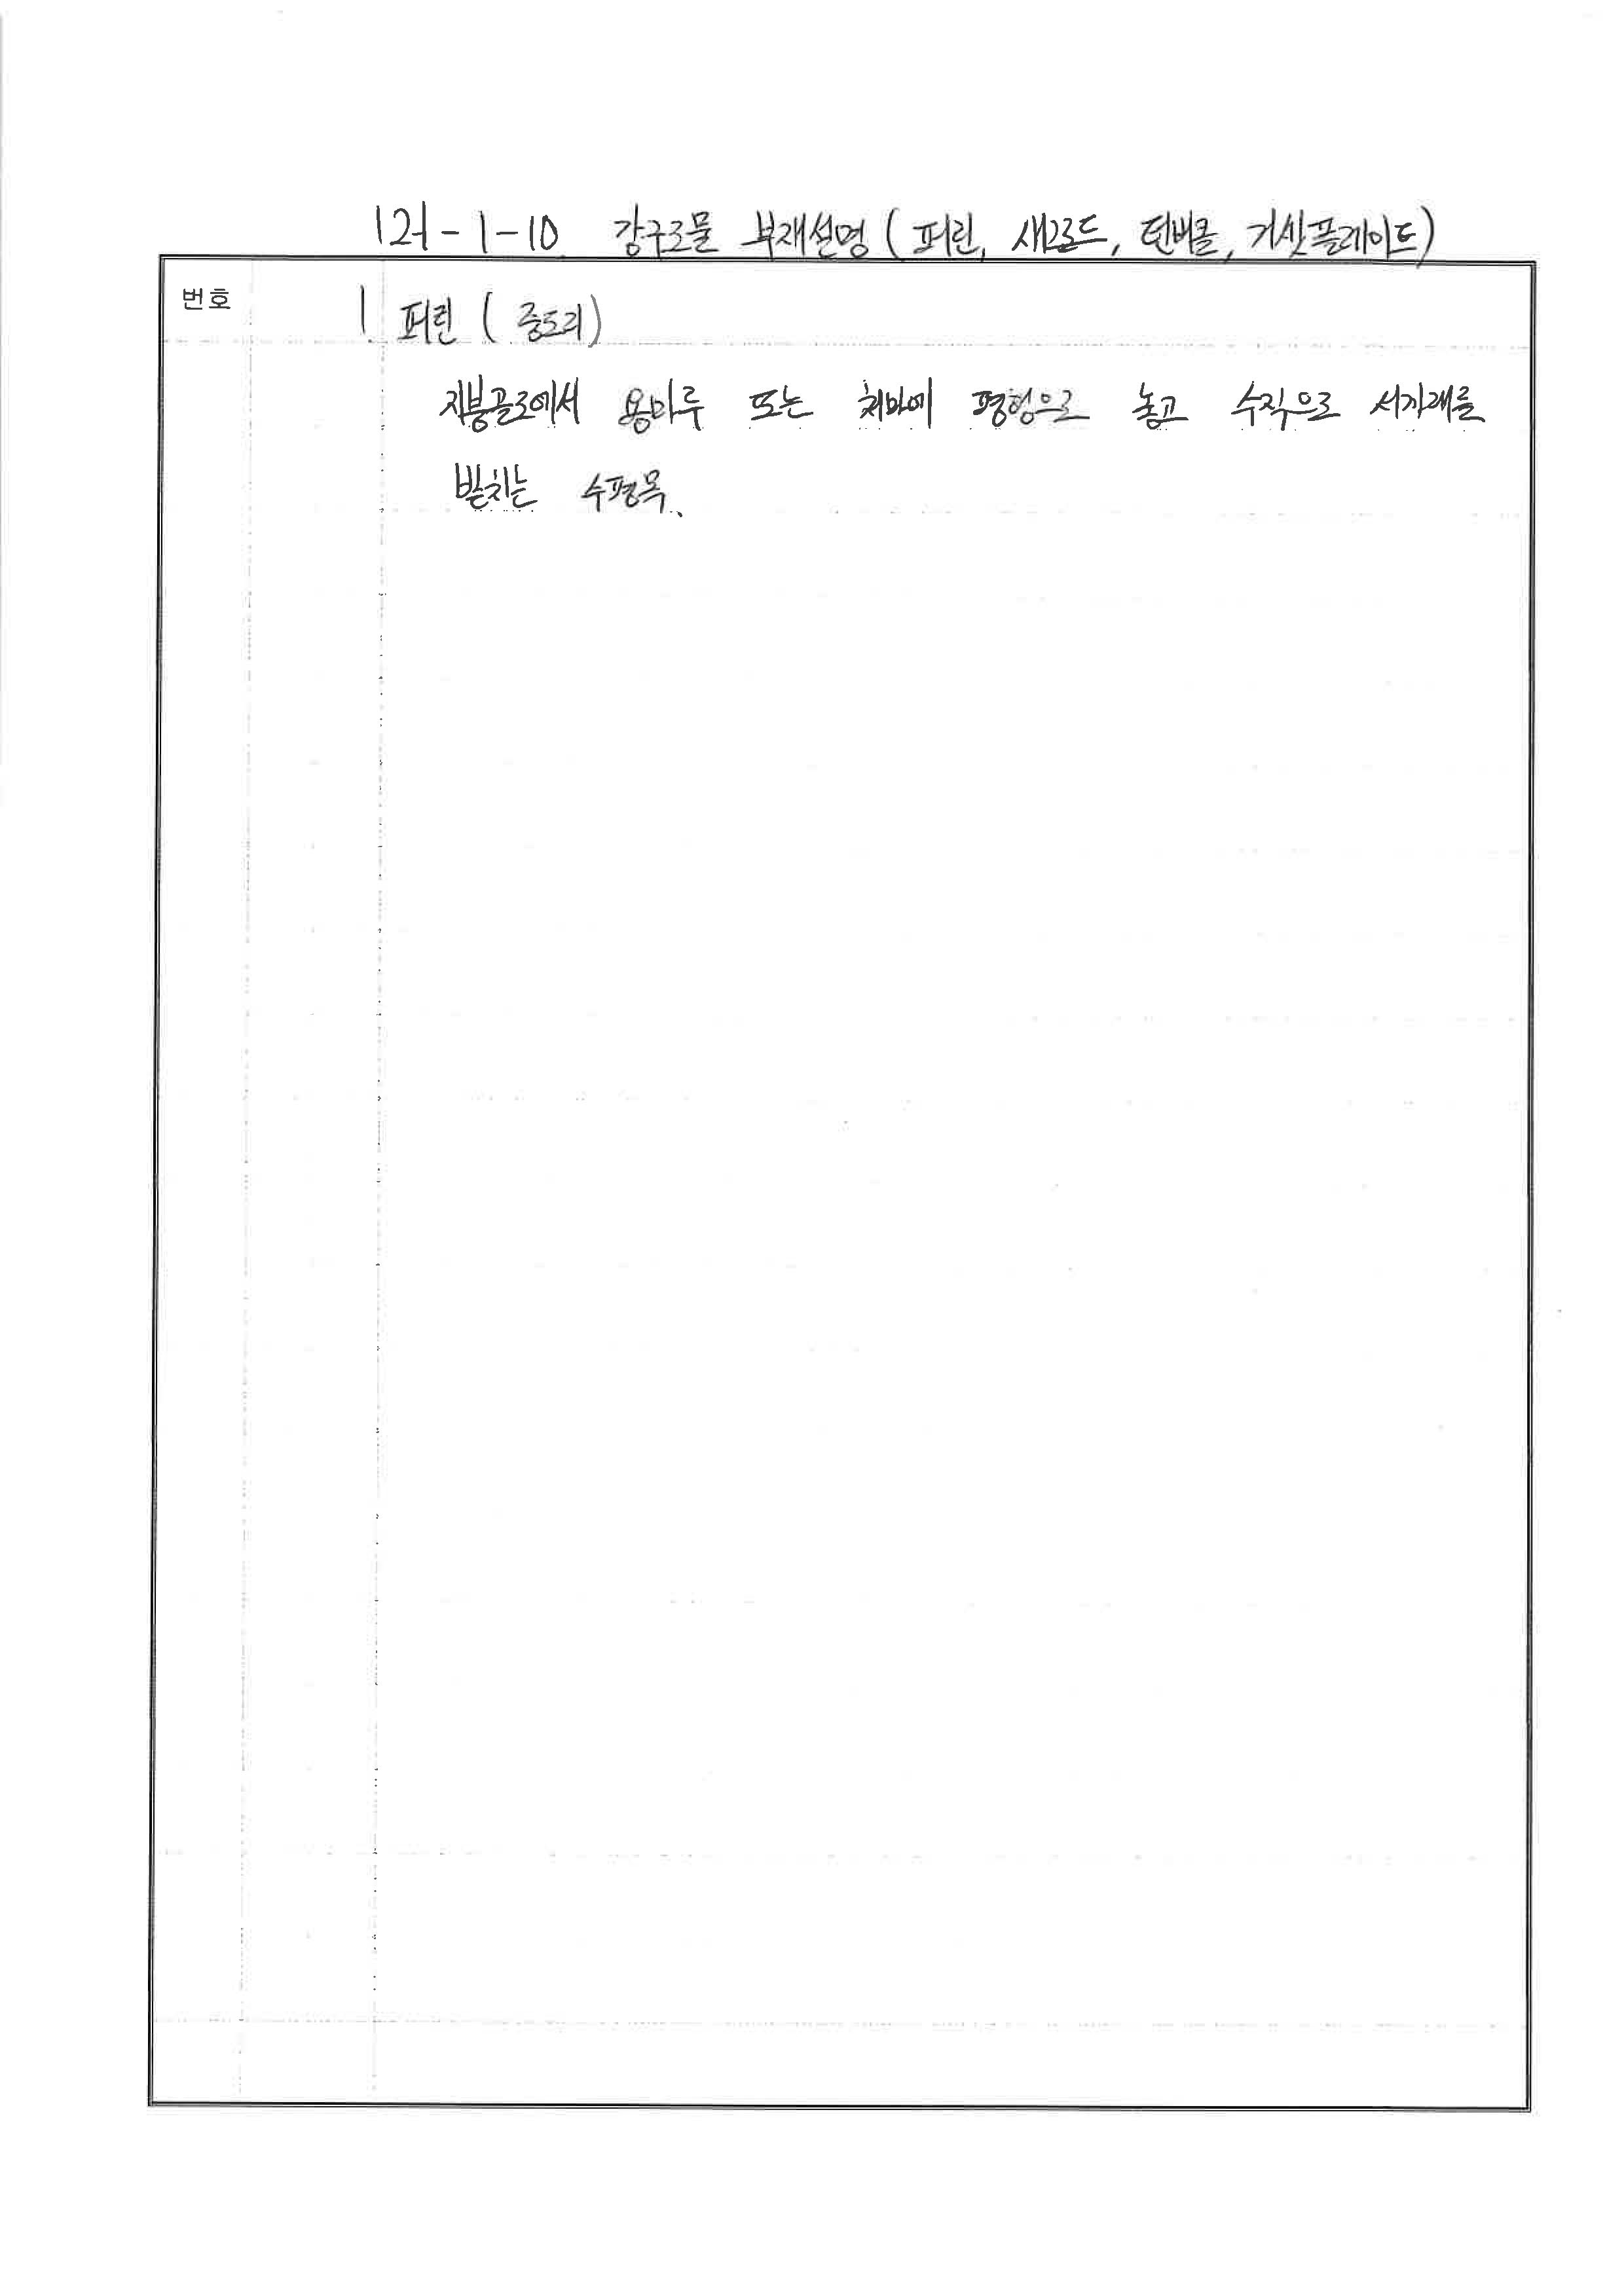 121-1-10. 강구조물 부재설명 (퍼린, 새그로드, 턴버클, 거싯플레이트)
번호
1. 퍼린 (중도리)
지붕골조에서 용마루 또는 처마에 평형으로 놓고 수직으로 서까래를
받치는 수평목.